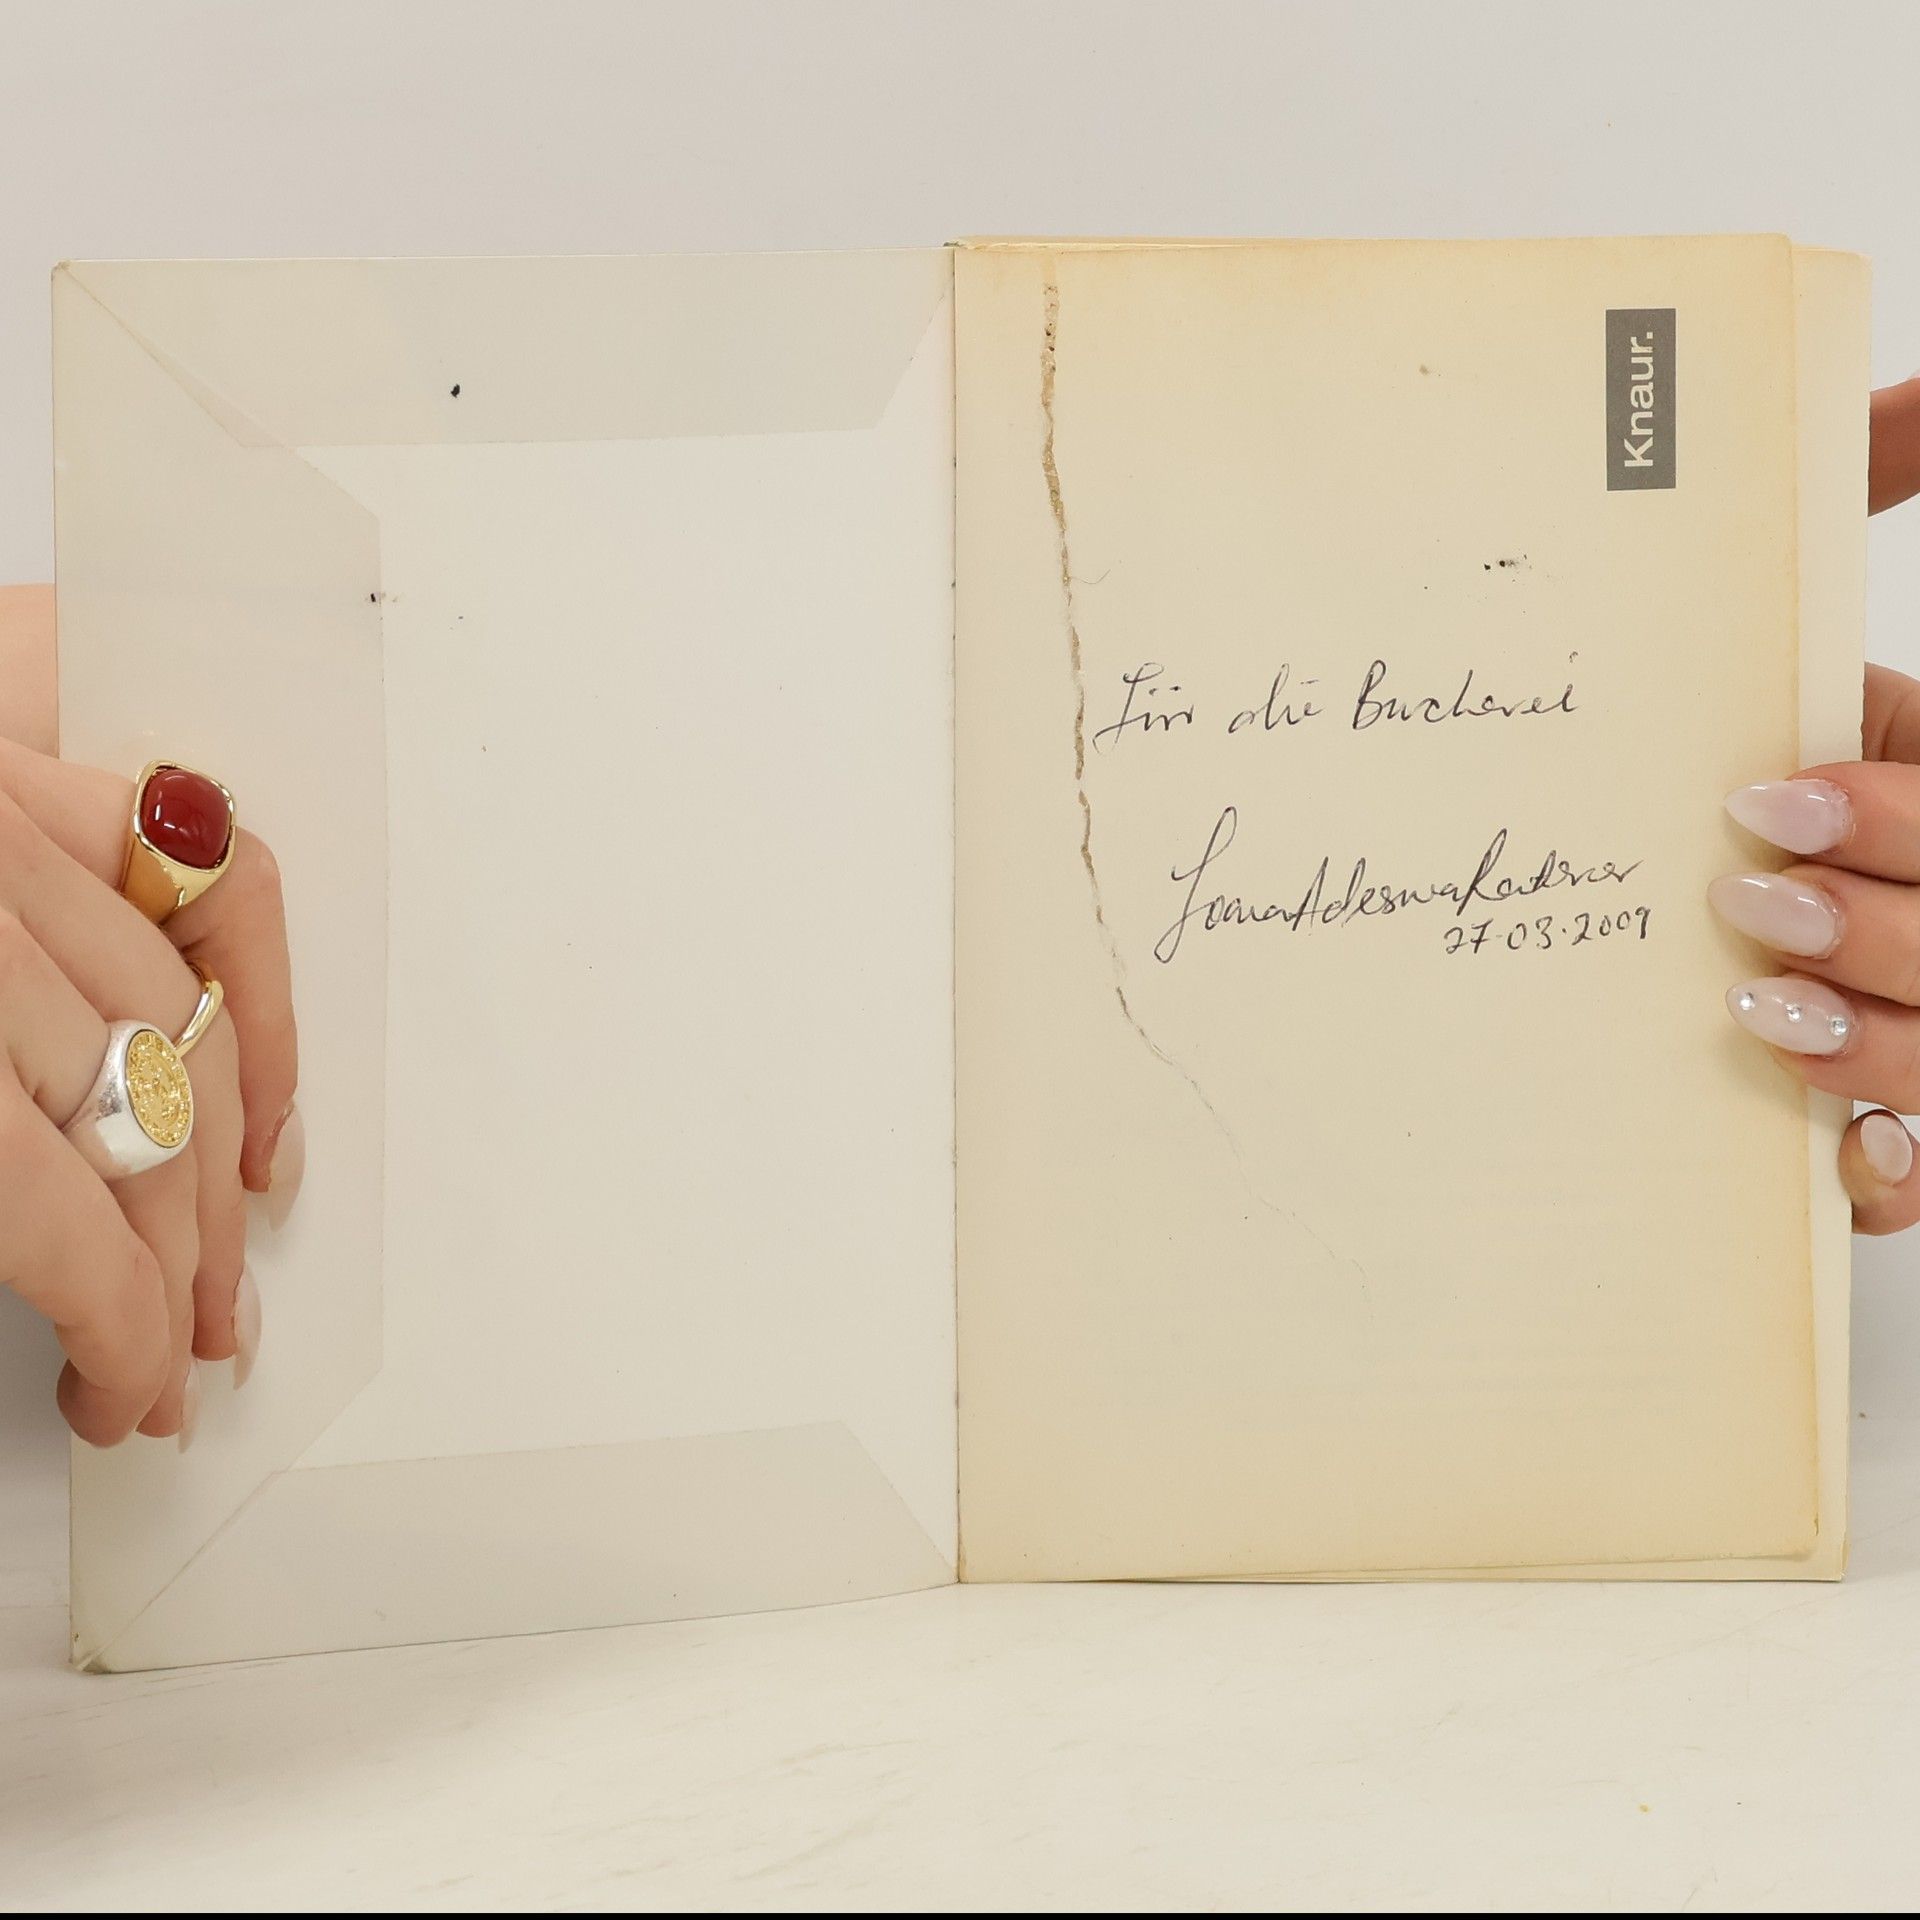 Knaur.
Für die Bücherei
Joana Adesuwa Reiterer
27.03.2009